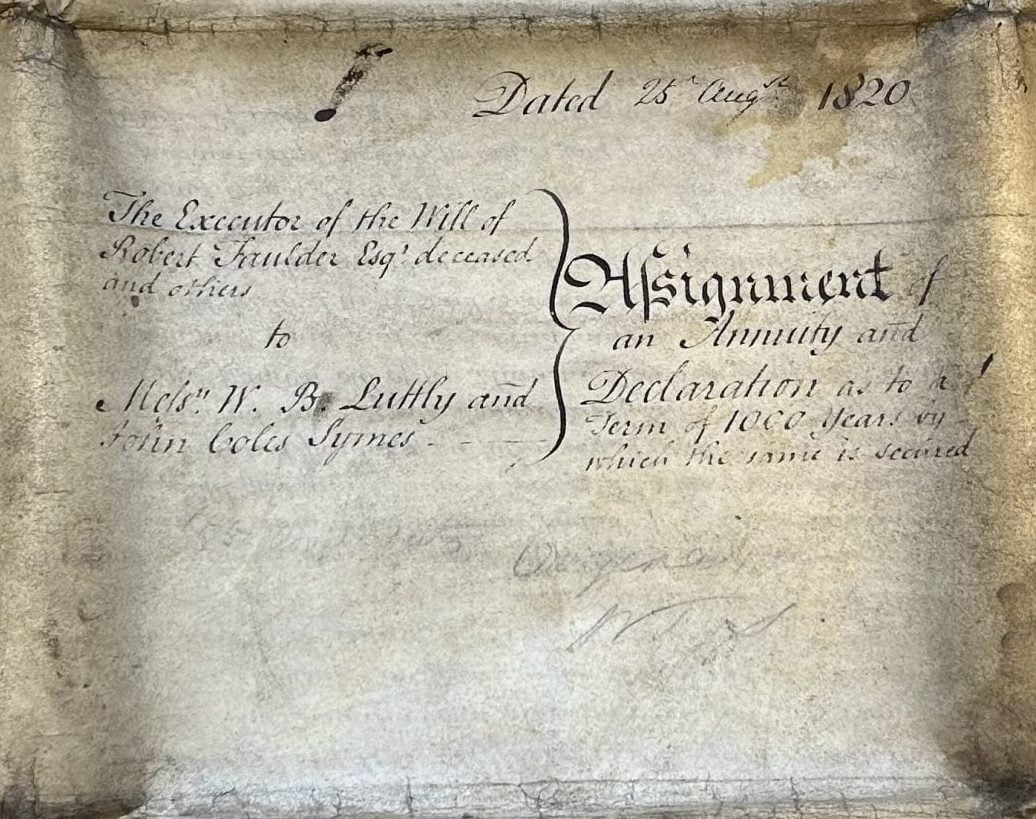 Dated 25th Augst 1820
The Executor of the Will of
Robert Faulder Esqr deceased
and others
to
Messrs W. B. Luttly and
John Coles Symes
Aſsignment of
an Annuity and
Declaration as to a
Term of 1000 Years by
which the same is secured